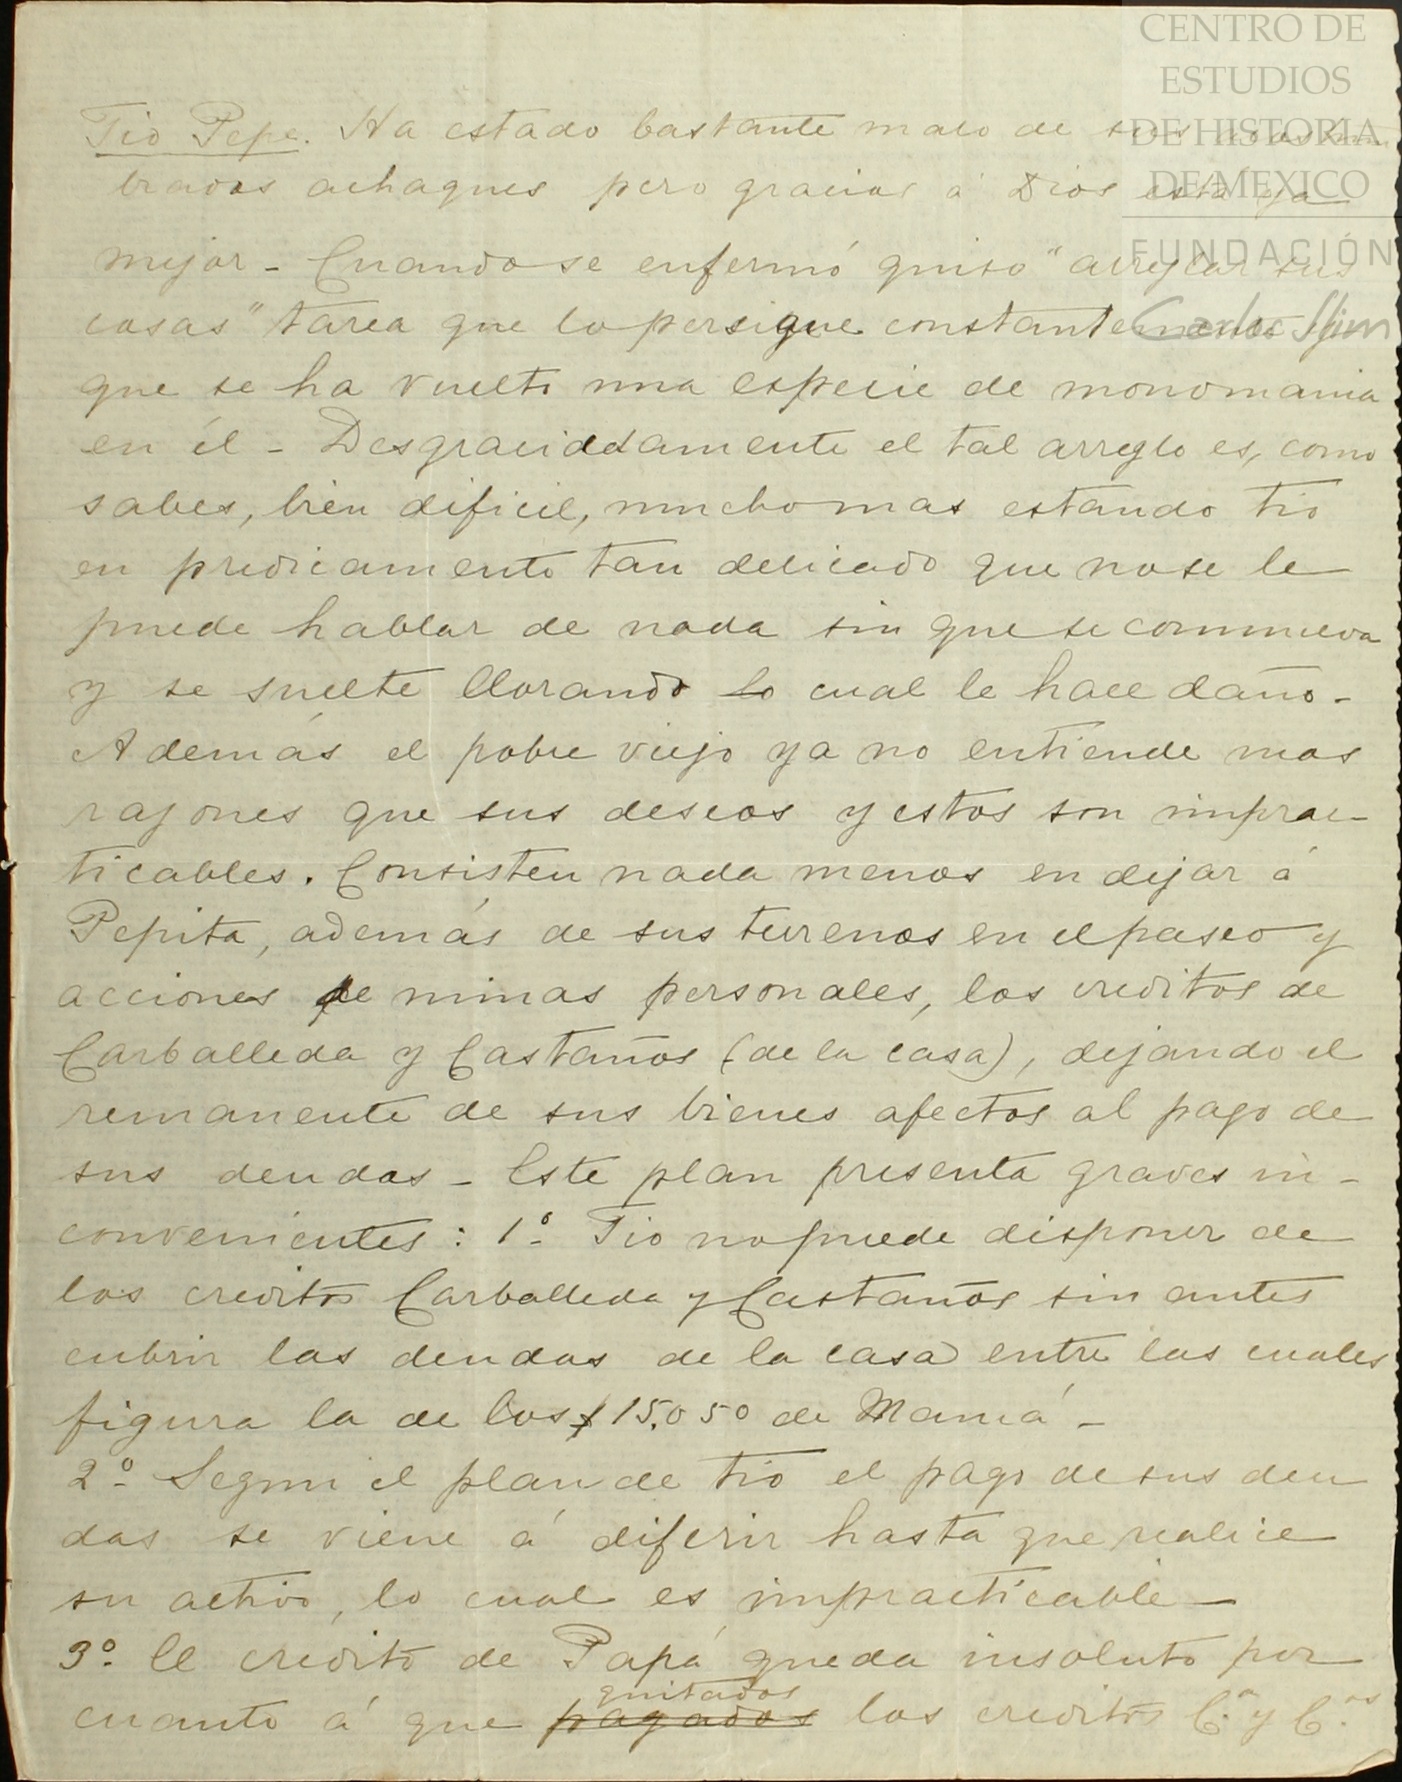 CENTRO DE
ESTUDIOS
DE HISTORIA
DE MEXICO
FUNDACIÓN
Carlos Slim
Tio Pepe. Ha estado bastante malo de sus acostum
brados achaques pero gracias á Dios está ya
mejor - Cuando se enfermó quiso "arreglar sus
cosas" tarea que lo persigue constantemente y
que se ha vuelto una especie de monomania
en él - Desgraciadamente el tal arreglo es, como
sabes, bien dificil, mucho mas estando tio
en predicamento tan delicado que no se le
puede hablar de nada sin que se conmueva
y se suelte llorando lo cual le hace daño -
Además el pobre viejo ya no entiende mas
razones que sus deseos y estos son imprac-
ticables. Consisten nada menos en dejar á
Pepita, además de sus terrenos en el paseo y
acciones de minas personales, los creditos de
Carballeda y Castaños (de la casa), dejando el
remanente de sus bienes afectos al pago de
sus deudas - Este plan presenta graves in-
convenientes: 1º- Tio no puede disponer de
los creditos Carballeda y Castaños sin antes
cubrir las deudas de la casa entre las cuales
figura la de los $15.050 de Mamá -
2º- Segun el plan de tio el pago de sus deu
das se viene á diferir hasta que realice
su activo, lo cual es impracticable -
3º- El crédito de Papá queda insoluto por
cuanto á que pagados quitados los creditos C.ª y C.ªˢ